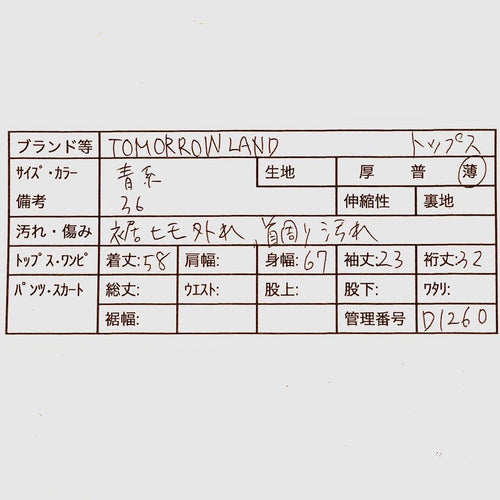 ブランド等 TOMORROWLAND トップス
サイズ・カラー 青系 生地 厚 普 薄
備考 36 伸縮性 裏地
汚れ・傷み 裾ヒモ外れ、首周り汚れ
トップス・ワンピ 着丈:58 肩幅: 身幅:67 袖丈:23 裄丈:32
パンツ・スカート 総丈: ウエスト: 股上: 股下: ワタリ:
裾幅: 管理番号 D1260